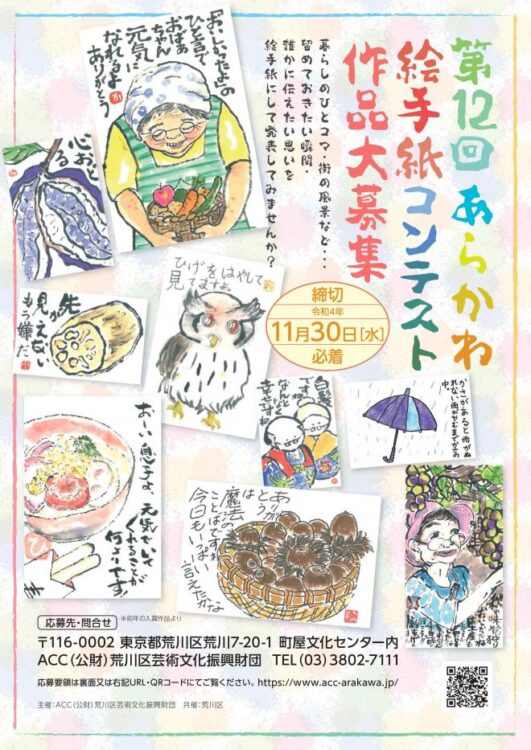 第12回 あらかわ
絵手紙コンテスト
作品大募集
暮らしのひとコマ・街の風景など・・・
留めておきたい瞬間・
誰かに伝えたい思いを
絵手紙にして発表してみませんか？
「おいしかったよ」の
ひと言で
おばあ
ちゃん
元気に
なれるよ
ありがとう
心おどる
ひげをはやして
見てますよ。
締切
令和4年
11月30日[水]
必着
先が
見えない
もう嫌だ
白髪
かさがあると雨がぬ
れない雨がやむまでかさの
中
おーい、息子よ、
元気でいて
くれることが
何よりです!
ありが
とう
は
魔法の
ことばですね
今日もいっぱい
言えたかな
応募先・問合せ
※前年の入賞作品より
〒116-0002 東京都荒川区荒川7-20-1 町屋文化センター内
ACC(公財)荒川区芸術文化振興財団 TEL(03)3802-7111
応募要領は裏面又は右記URL・QRコードにてご覧ください。https://www.acc-arakawa.jp/
主催：ACC(公財)荒川区芸術文化振興財団 共催：荒川区